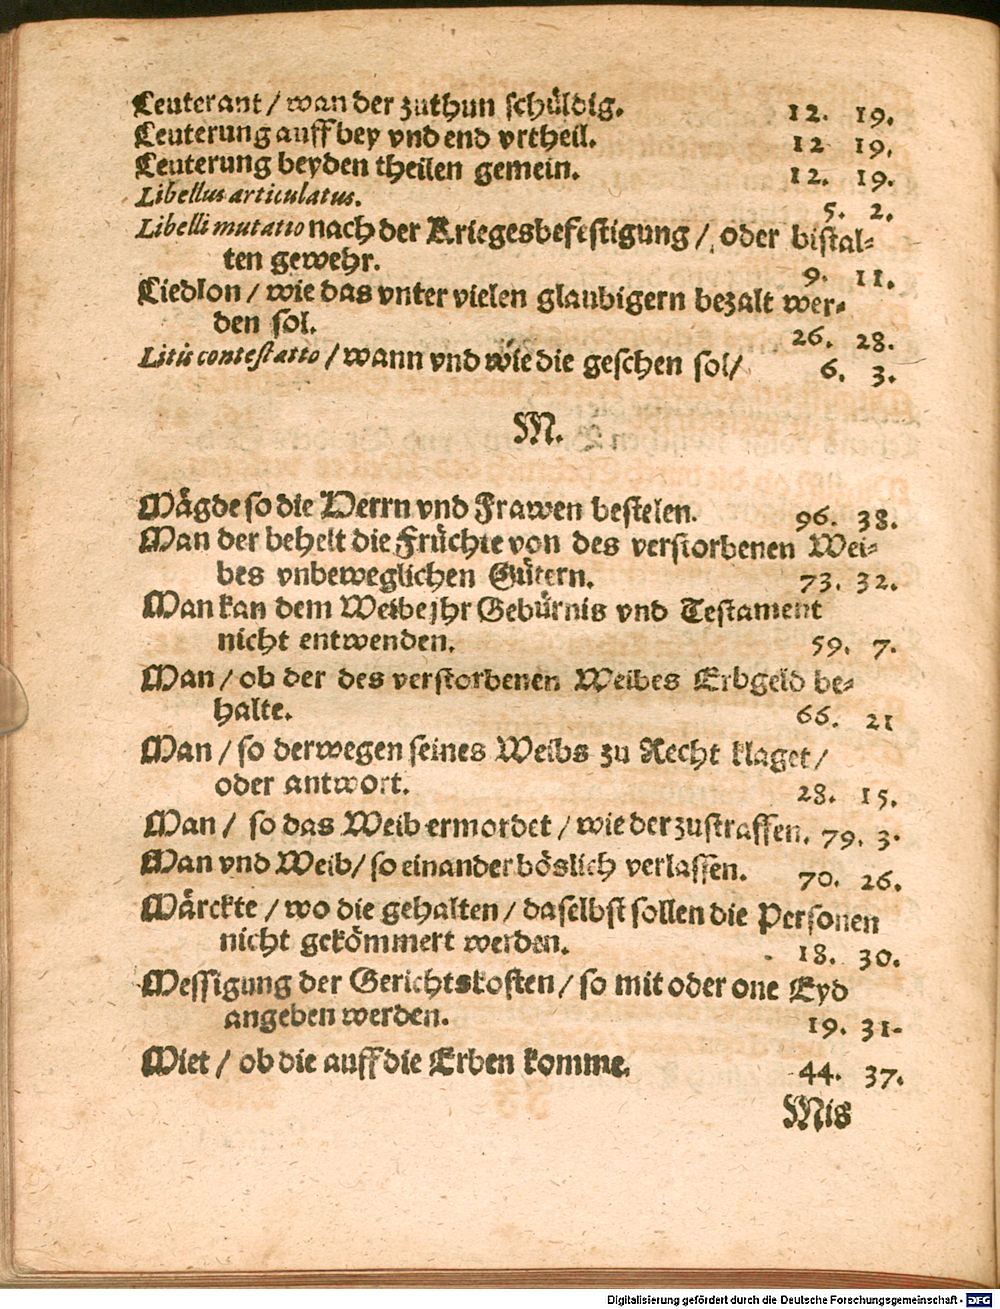 Leuterant / wan der zuthun schüldig. 12. 19.
Leuterung auff bey vnd end vrtheil. 12 19.
Leuterung beyden theilen gemein. 12. 19.
Libellus articulatus. 5. 2.
Libelli mutatio nach der Kriegesbefestigung / oder bistal-
ten gewehr. 9. 11.
Liedlon / wie das vnter vielen glaubigern bezalt wer-
den sol. 26. 28.
Litis contestatio / wann vnd wie die geschen sol/ 6. 3.
M.
Mägde so die Herrn vnd Frawen bestelen. 96. 38.
Man der behelt die Früchte von des verstorbenen Wei-
bes vnbeweglichen Gütern. 73. 32.
Man kan dem Weibe jhr Gebürnis vnd Testament
nicht entwenden. 59. 7.
Man / ob der des verstorbenen Weibes Erbgeld be-
halte. 66. 21
Man / so derwegen seines Weibs zu Recht klaget /
oder antwort. 28. 15.
Man / so das Weib ermordet / wie der zustraffen. 79. 3.
Man vnd Weib / so einander böslich verlassen. 70. 26.
Märckte / wo die gehalten / daselbst sollen die Personen
nicht gekömmert werden. 18. 30.
Messigung der Gerichtskosten / so mit oder one Eyd
angeben werden. 19. 31.
Miet / ob die auff die Erben komme. 44. 37.
Mis
Digitalisierung gefördert durch die Deutsche Forschungsgemeinschaft - DFG